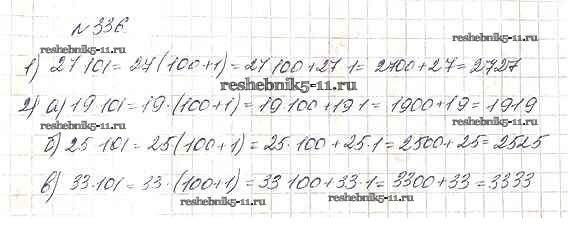 № 336
reshebnik5-11.ru
1) 27 101 = 27 (100+1) = 27 100 + 27 1 = 2700 + 27 = 2727
reshebnik5-11.ru
2) а) 19 101 = 19 · (100+1) = 19 100 + 19 1 = 1900 + 19 = 1919
reshebnik5-11.ru
б) 25 101 = 25 (100+1) = 25 · 100 + 25 · 1 = 2500 + 25 = 2525
reshebnik5-11.ru
в) 33 · 101 = 33 · (100+1) = 33 100 + 33 · 1 = 3300 + 33 = 3333
reshebnik5-11.ru
reshebnik5-11.ru